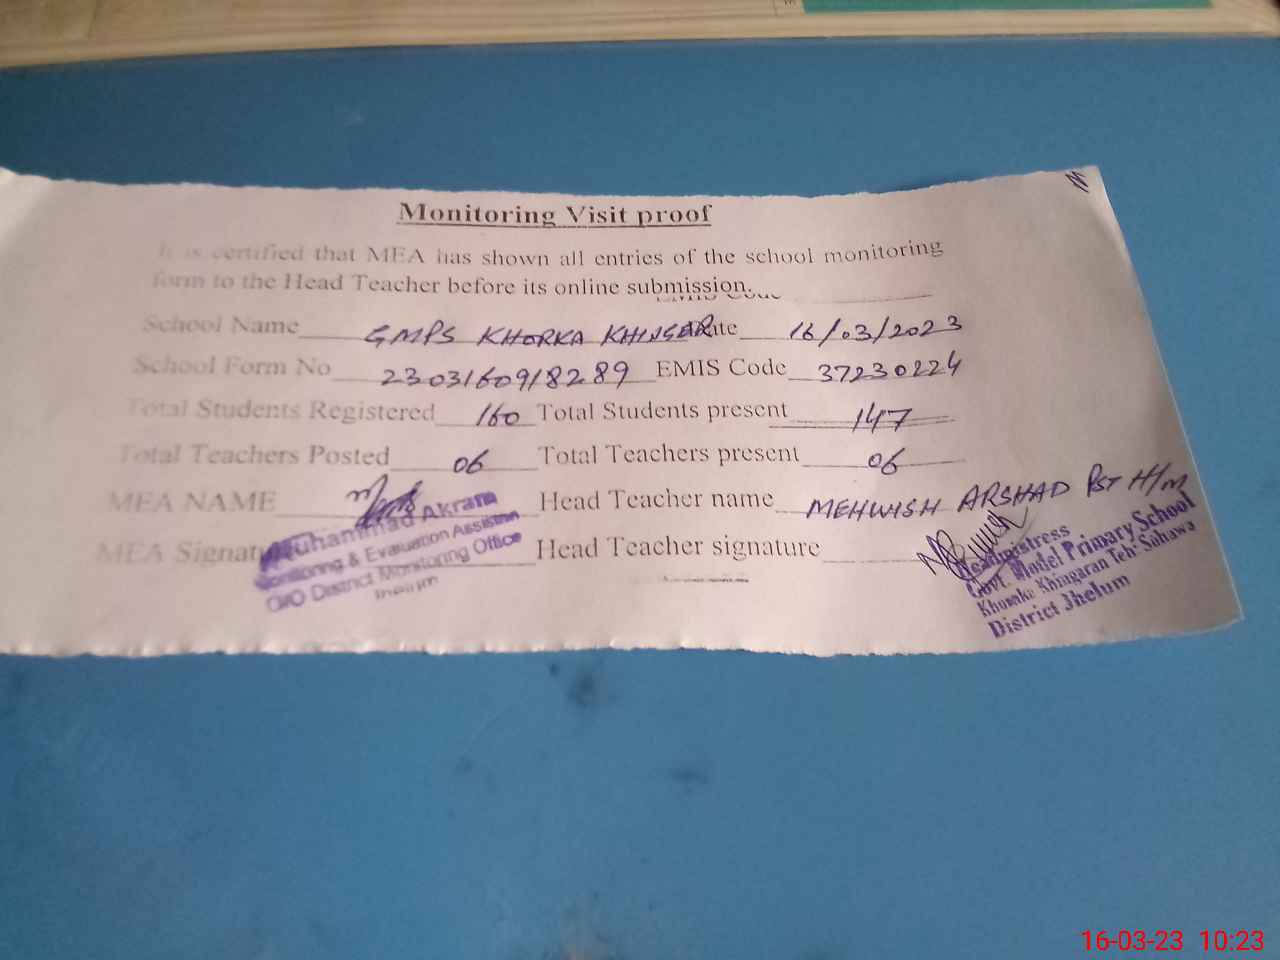 Monitoring Visit proof
It is certified that MEA has shown all entries of the school monitoring
form to the Head Teacher before its online submission.
EMIS Code
School Name GMPS KHORKA KHINGER Date 16/03/2023
School Form No 2303160918289 EMIS Code 37230224
Total Students Registered 160 Total Students present 147
Total Teachers Posted 06 Total Teachers present 06
MEA NAME Head Teacher name MEHWISH ARSHAD PST H/M
Muhammad Akram
Monitoring & Evaluation Assistan
O/O District Monitoring Office
Jhelum
MEA Signatu Head Teacher signature
Headmistress
Govt. Model Primary School
Khingaran Teh: Sohawa
District Jhelum
16-03-23 10:23